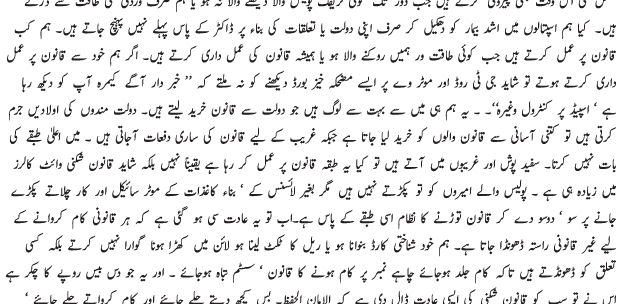 ہیں۔ کیا ہم اسپتالوں میں اشد بیمار کو دھکیل کر صرف اپنی دولت یا تعلقات کی بناء پر ڈاکٹر کے پاس پہلے نہیں پہنچ جاتے ہیں۔ ہم کب
قانون پر عمل کرتے ہیں جب کوئی طاقت ور ہمیں روکنے والا ہو یا ہمیشہ قانون کی عمل داری کرتے ہیں۔ اگر ہم خود سے قانون پر عمل
داری کرتے ہوتے تو شاید جی ٹی روڈ اور موٹر وے پر ایسے مضحکہ خیز بورڈ دیکھنے کو نہ ملتے کہ ’’ خبر دار آگے کیمرہ آپ کو دیکھ رہا
ہے ‘ اسپیڈ پر کنٹرول وغیرہ‘‘۔ ۔ یہ ہم ہی میں سے بہت سے لوگ ہیں جو دولت سے قانون خرید لیتے ہیں۔ دولت مندوں کی اولادیں جرم
کرتی ہیں تو کتنی آسانی سے قانون والوں کو خرید لیا جاتا ہے جبکہ غریب کے لیے قانون کی ساری دفعات آجاتی ہیں ۔ میں اعلیٰ طبقے کی
بات نہیں کرتا۔ سفید پوش اور غریبوں میں آتے ہیں تو کیا یہ طبقہ قانون پر عمل کر رہا ہے یقیناً نہیں بلکہ شاید قانون شکنی وائٹ کالرز
میں زیادہ ہی ہے ۔ پولیس والے امیروں کو تو پکڑتے نہیں ہیں مگر بغیر لائسنس کے ‘ بناء کاغذات کے موٹر سائیکل اور کار چلاتے پکڑے
جانے پر سو ‘ دوسو دے کر قانون توڑنے کا نظام اسی طبقے کے پاس ہے۔اب تو یہ عادت سی ہو گئی ہے کہ ہر قانونی کام کروانے کے
لیے غیر قانونی راستہ ڈھونڈا جاتا ہے۔ ہم خود شناختی کارڈ بنوانا ہو یا ریل کا ٹکٹ لینا ہو لائن میں کھڑا ہونا گوارا نہیں کرتے بلکہ کسی
تعلق کو ڈھونڈتے ہیں تاکہ کام جلد ہوجائے چاہے نمبر پر کام ہونے کا قانون ‘ سسٹم تباہ ہوجائے ۔ اور یہ جو دس بیس روپے کا چکر ہے
اس نے تو سب کو قانون شکنی کی ایسی عادت ڈال دی ہے کہ الامان الحفیظ۔ بس کچھ دیتے جائے اور کام کرواتے چلے جائے ‘